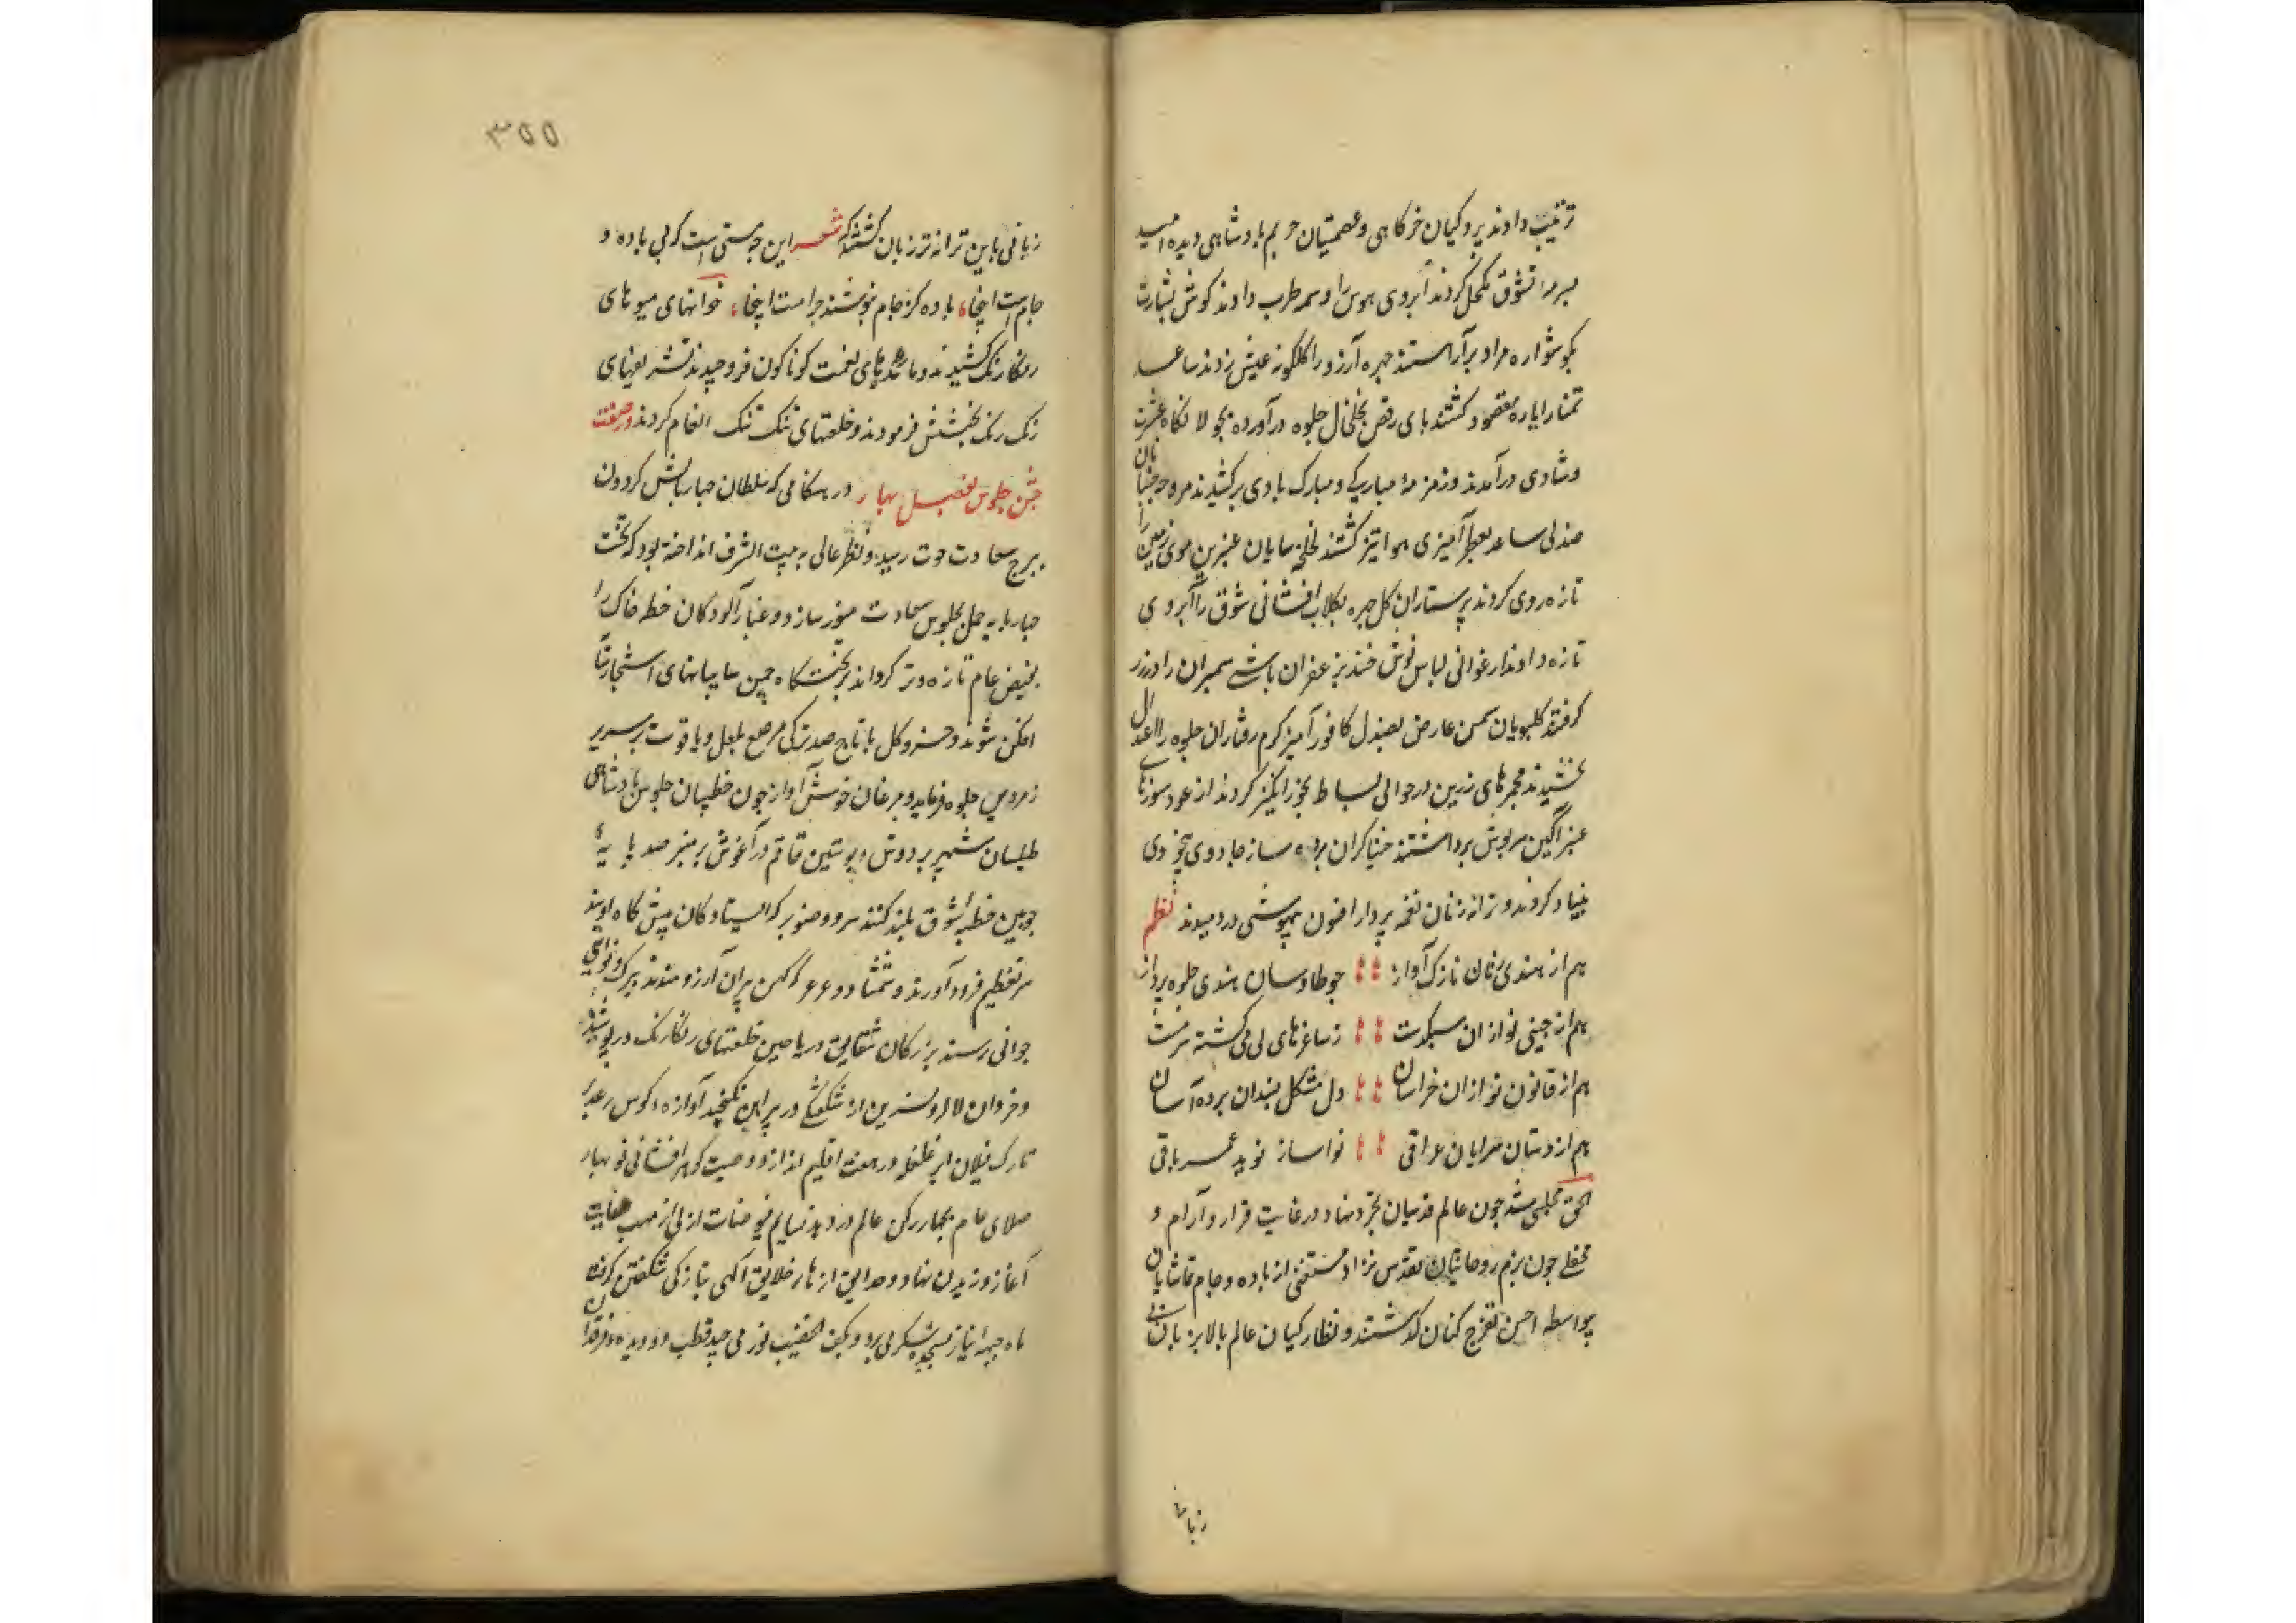 ترتیب دادند پردکیان خرکاهی و عصمتیان حریم بادشاهی دیده امید
بسرمه تشوق مکحل کردند ابروی هوس را وسمه طرب دادند کوش بشارت
بکوشواره مراد برآراستند چهره آرزو را کلکونه عیش زدند ساعد
تمنا را یاره مقصود کشتند بای رقص بخلخال جلوه درآورده بجولانکاه عشرت
و شادی درآمدند و زمزمهٔ مبارکی و مبارک بادی برکشیدند مروحه جنبانان
صندلی ساعد بعطر آمیزی هوا تیز کشتند لخلخه سایان عنبرین موی زمین را
تازه روی کردند پرستاران کل چهره بکلاب افشانی شوق را آبروی
تازه دادند ارغوانی لباس نوش خند بزعفران باشی سمبران را در زر
کرفتند کلبویان سمن عارض بصندل کافور آمیز کرم رفتاران جلوه را اعتدال
بخشیدند مجمرهای زرین در حوالی بساط بخور انکیز کردند از عود سوزهای
عنبر آکین سرپوش برداشتند خنیاکران پرده ساز جادوی بیخودی
بنیاد کردند و ترانه زنان نغمه پرداز افسون بیهوشی در دمیدند نظم
هم از هندی زنان نازک آواز چو طاوسان هندی جلوه پرداز
هم از چینی نوازان سبکدست ز ساغرهای لی می کشته سرمست
هم از قانون نوازان خراسان دل مشکل بسندان برده آسان
هم از دستان سرایان عراقی نواساز نوید عمر باقی
الحق مجلسی شد چون عالم قدسیان تجرد نهاد در غایت قرار و آرام و
محفلی چون بزم روحانیان تقدس نژاد مستغنی از باده و جام تماشایان
بواسطه احسن تفرج کنان کذشتند و نظارکیان عالم بالا بزبان بی
زبانی
٣٥٥
زبانی باین ترانه تر زبان کشتند که شعر این چه مستی است که بی باده و
جام است اینجا باده کز جام بنوشند حرامست اینجا خوانهای میوهای
رنکارنک کشیدند و مائدهای نعمت کوناکون فرو چیدند تشریفهای
رنک رنک بخشش فرمودند و خلعتهای تنک تنک انعام کردند در صفت
جشن جلوس بفصل بهار در هنکامی که سلطان چهاربالش کردون
ببرج سعادت حوت رسید و نظر عالی به بیت الشرف انداخته بود که تخت
چهارپایه حمل بجلوس سعادت منور سازد و غبار آلودکان خطه خاک را
بفیض عام تازه و تر کرداند بر تختکاه چمن سایبانهای اشجار سایه
افکن شوند و خسرو کل با تاج صد ترکی مرصع بلعل و یاقوت بر سریر
زمردین جلوه فرماید و مرغان خوش آواز چون خطیبان جلوس بادشاهی
طیلسان شهپر بر دوش و پوستین قاقم در آغوش بر منبر صد پایهٔ
چوبین خطبهٔ شوق بلند کنند سرو و صنوبر که ایستادکان پیش کاه اویند
سر تعظیم فرود آورند و شمشاد و عرعر کهن پیران آرزومندند ببرک و نوای
جوانی رسند بزرکان شقایق و ریاحین خلعتهای رنکارنک درپوشند
و خردان لاله و نسرین از شکفتکی در پیراهن نکنجند آوازه کوس رعد بر
تارک فیلان ابر غلغله در هفت اقلیم اندازد و صیت کوهر افشانی نوبهار
صلای عام بچهار رکن عالم در دهد نسایم فیوضات ازلی از مهب عنایت
آغاز وزیدن نهاد و حدایق ازهار خلایق آکهی بتازکی شکفتن کرفت
ماه جبههٔ نیاز بسجدهٔ شکر می برد و بکف الخضیب نور می چید قطب دو دیده فرقدان